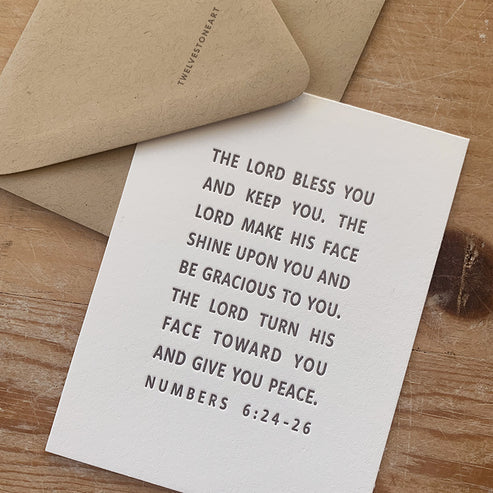 TWELVESTONEART
THE LORD BLESS YOU
AND KEEP YOU. THE
LORD MAKE HIS FACE
SHINE UPON YOU AND
BE GRACIOUS TO YOU.
THE LORD TURN HIS
FACE TOWARD YOU
AND GIVE YOU PEACE.
NUMBERS 6:24-26